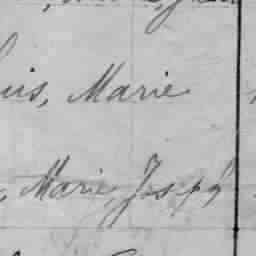 uis, Marie
, Marie, Joseph